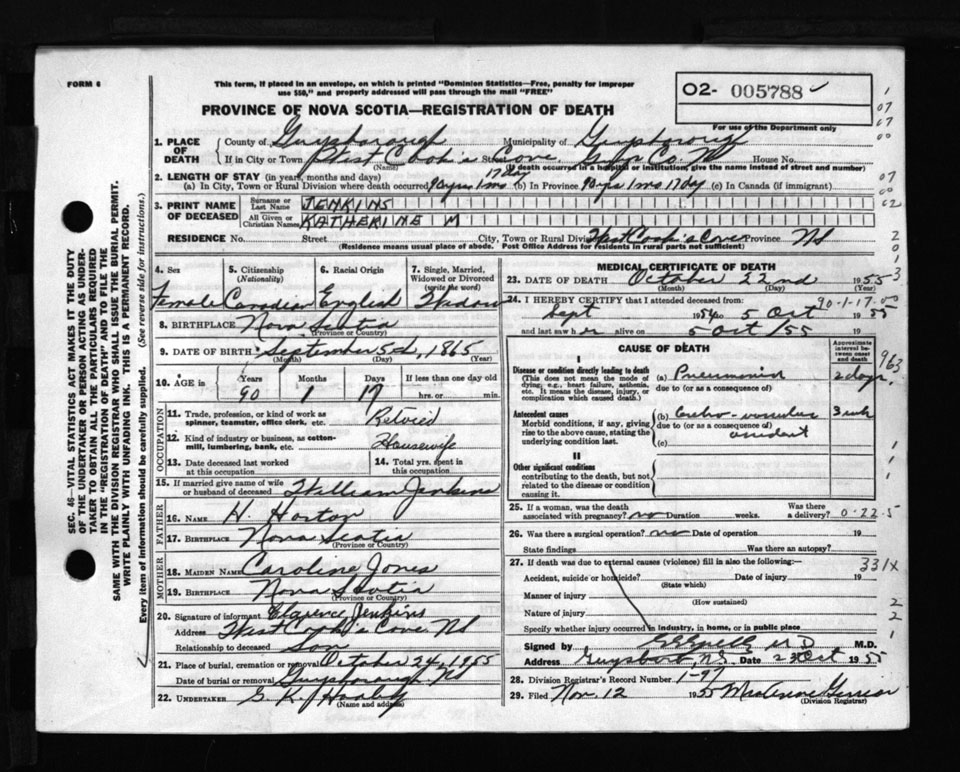 FORM 6
This form, if placed in an envelope, on which is printed "Dominion Statistics—Free, penalty for improper
use $50," and properly addressed will pass through the mail "FREE"
PROVINCE OF NOVA SCOTIA—REGISTRATION OF DEATH
O2- 005788
For use of the Department only
SEC. 46—VITAL STATISTICS ACT MAKES IT THE DUTY
OF THE UNDERTAKER OR PERSON ACTING AS UNDER-
TAKER TO OBTAIN ALL THE PARTICULARS REQUIRED
IN THE "REGISTRATION OF DEATH" AND TO FILE THE
SAME WITH THE DIVISION REGISTRAR WHO SHALL ISSUE THE BURIAL PERMIT.
WRITE PLAINLY WITH UNFADING INK. THIS IS A PERMANENT RECORD.
Every item of information should be carefully supplied. (See reverse side for instructions.)
1. PLACE OF DEATH
County of Guysborough Municipality of Guysborough
If in City or Town West Cook's Cove Street Guys. Co. NS House No.
(Name) (If death occurred in a hospital or institution, give the name instead of street and number)
2. LENGTH OF STAY (in years, months and days)
(a) In City, Town or Rural Division where death occurred 90 yrs 1 mo 17 day (b) In Province 90 yrs 1 mo 17 day (c) In Canada (if immigrant)
3. PRINT NAME OF DECEASED
Surname or Last Name JENKINS
All Given or Christian Names KATHERINE M
RESIDENCE No. Street City, Town or Rural Division West Cook's Cove Province NS
(Residence means usual place of abode. Post Office Address for residents in rural parts not sufficient)
4. Sex Female
5. Citizenship (Nationality) Canadian
6. Racial Origin English
7. Single, Married, Widowed or Divorced (write the word) Widow
8. BIRTHPLACE Nova Scotia
(Province or Country)
9. DATE OF BIRTH September 5th, 1865
(Month) (Day) (Year)
10. AGE in Years 90 Months 1 Days 17 If less than one day old hrs. or min.
OCCUPATION
11. Trade, profession, or kind of work as spinner, teamster, office clerk, etc. Retired
12. Kind of industry or business, as cotton-mill, lumbering, bank, etc. Housewife
13. Date deceased last worked at this occupation
14. Total yrs. spent in this occupation
15. If married give name of wife or husband of deceased William Jenkins
FATHER
16. NAME H. Horton
17. BIRTHPLACE Nova Scotia
(Province or Country)
MOTHER
18. MAIDEN NAME Caroline Jones
19. BIRTHPLACE Nova Scotia
(Province or Country)
20. Signature of informant Clarence Jenkins
Address West Cook's Cove NS
Relationship to deceased Son
21. Place of burial, cremation or removal October 24, 1955
Date of burial or removal Guysborough NS
22. UNDERTAKER S. K.
(Name and address)
MEDICAL CERTIFICATE OF DEATH
23. DATE OF DEATH October 22nd 1955
(Month) (Day)
24. I HEREBY CERTIFY that I attended deceased from 90-1-17-00
Sept 1954 to 5 Oct 1955
and last saw her alive on 5 Oct/55 19
CAUSE OF DEATH
Approximate interval between onset and death
I
Disease or condition directly leading to death
(This does not mean the mode of dying, e.g., heart failure, asthenia, etc. It means the disease, injury, or complication which caused death.)
(a) Pneumonia 2 days
due to (or as a consequence of)
Antecedent causes
Morbid conditions, if any, giving rise to the above cause, stating the underlying condition last.
(b) Cerebro-vascular 3 wk
due to (or as a consequence of)
accident
(c)
II
Other significant conditions
contributing to the death, but not related to the disease or condition causing it.
25. If a woman, was the death associated with pregnancy? no Duration weeks. Was there a delivery? 0-22-5
26. Was there a surgical operation? no Date of operation 19
State findings Was there an autopsy?
27. If death was due to external causes (violence) fill in also the following:— 331X
Accident, suicide or homicide? Date of injury 19
(State which)
Manner of injury
(How sustained)
Nature of injury
Specify whether injury occurred in industry, in home, or in public place
Signed by M D M.D.
Address Guysboro, N.S. Date 23 Oct 1955
28. Division Registrar's Record Number 1-97
29. Filed Nov. 12 1955
(Division Registrar)
963